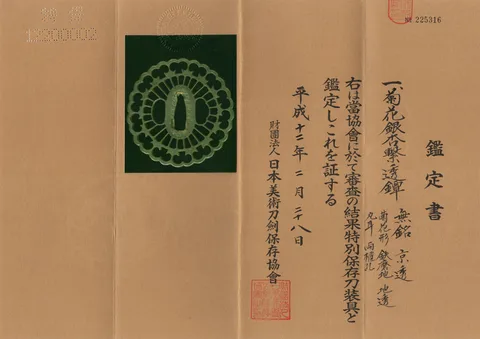 225316
鑑定書
一、菊花銀杏繋透鐔 無銘 京透
菊花形 鉄磨地 地透
丸耳 両櫃孔
右は當協會に於て審査の結果特別保存刀装具と
鑑定しこれを証する
平成十二年二月二十八日
財團法人 日本美術刀劍保存協會